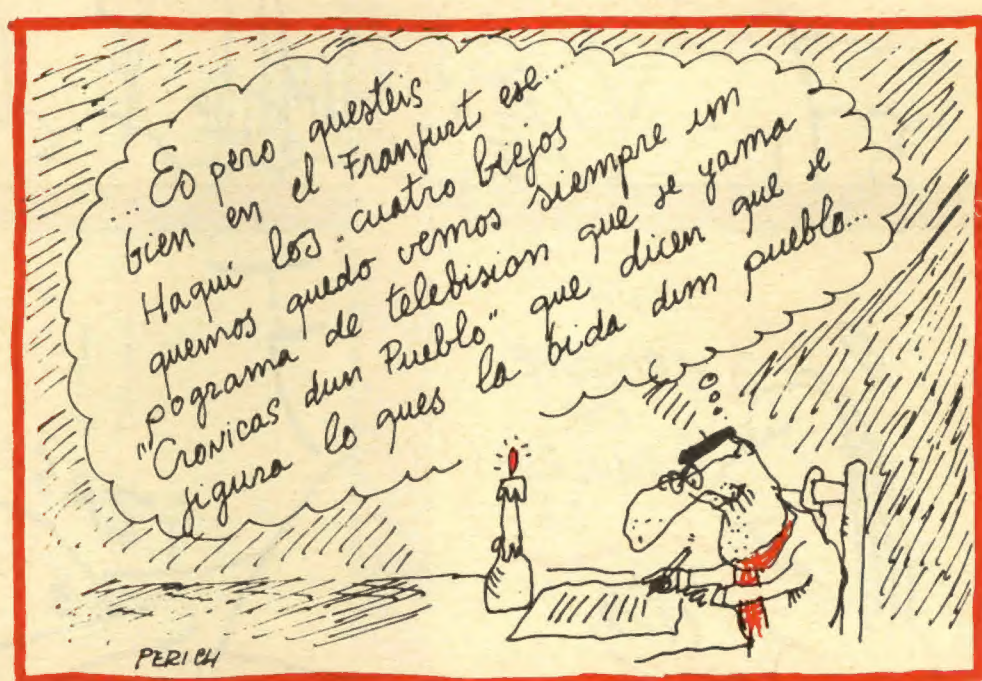 ... Es pero questeis
bien en el Franfurt ese...
Haqui los cuatro biejos
quemos quedo vemos siempre un
pograma de telebision que se yama
"Cronicas dun Pueblo" que dicen que se
figura lo ques la bida dun pueblo...
PERICH